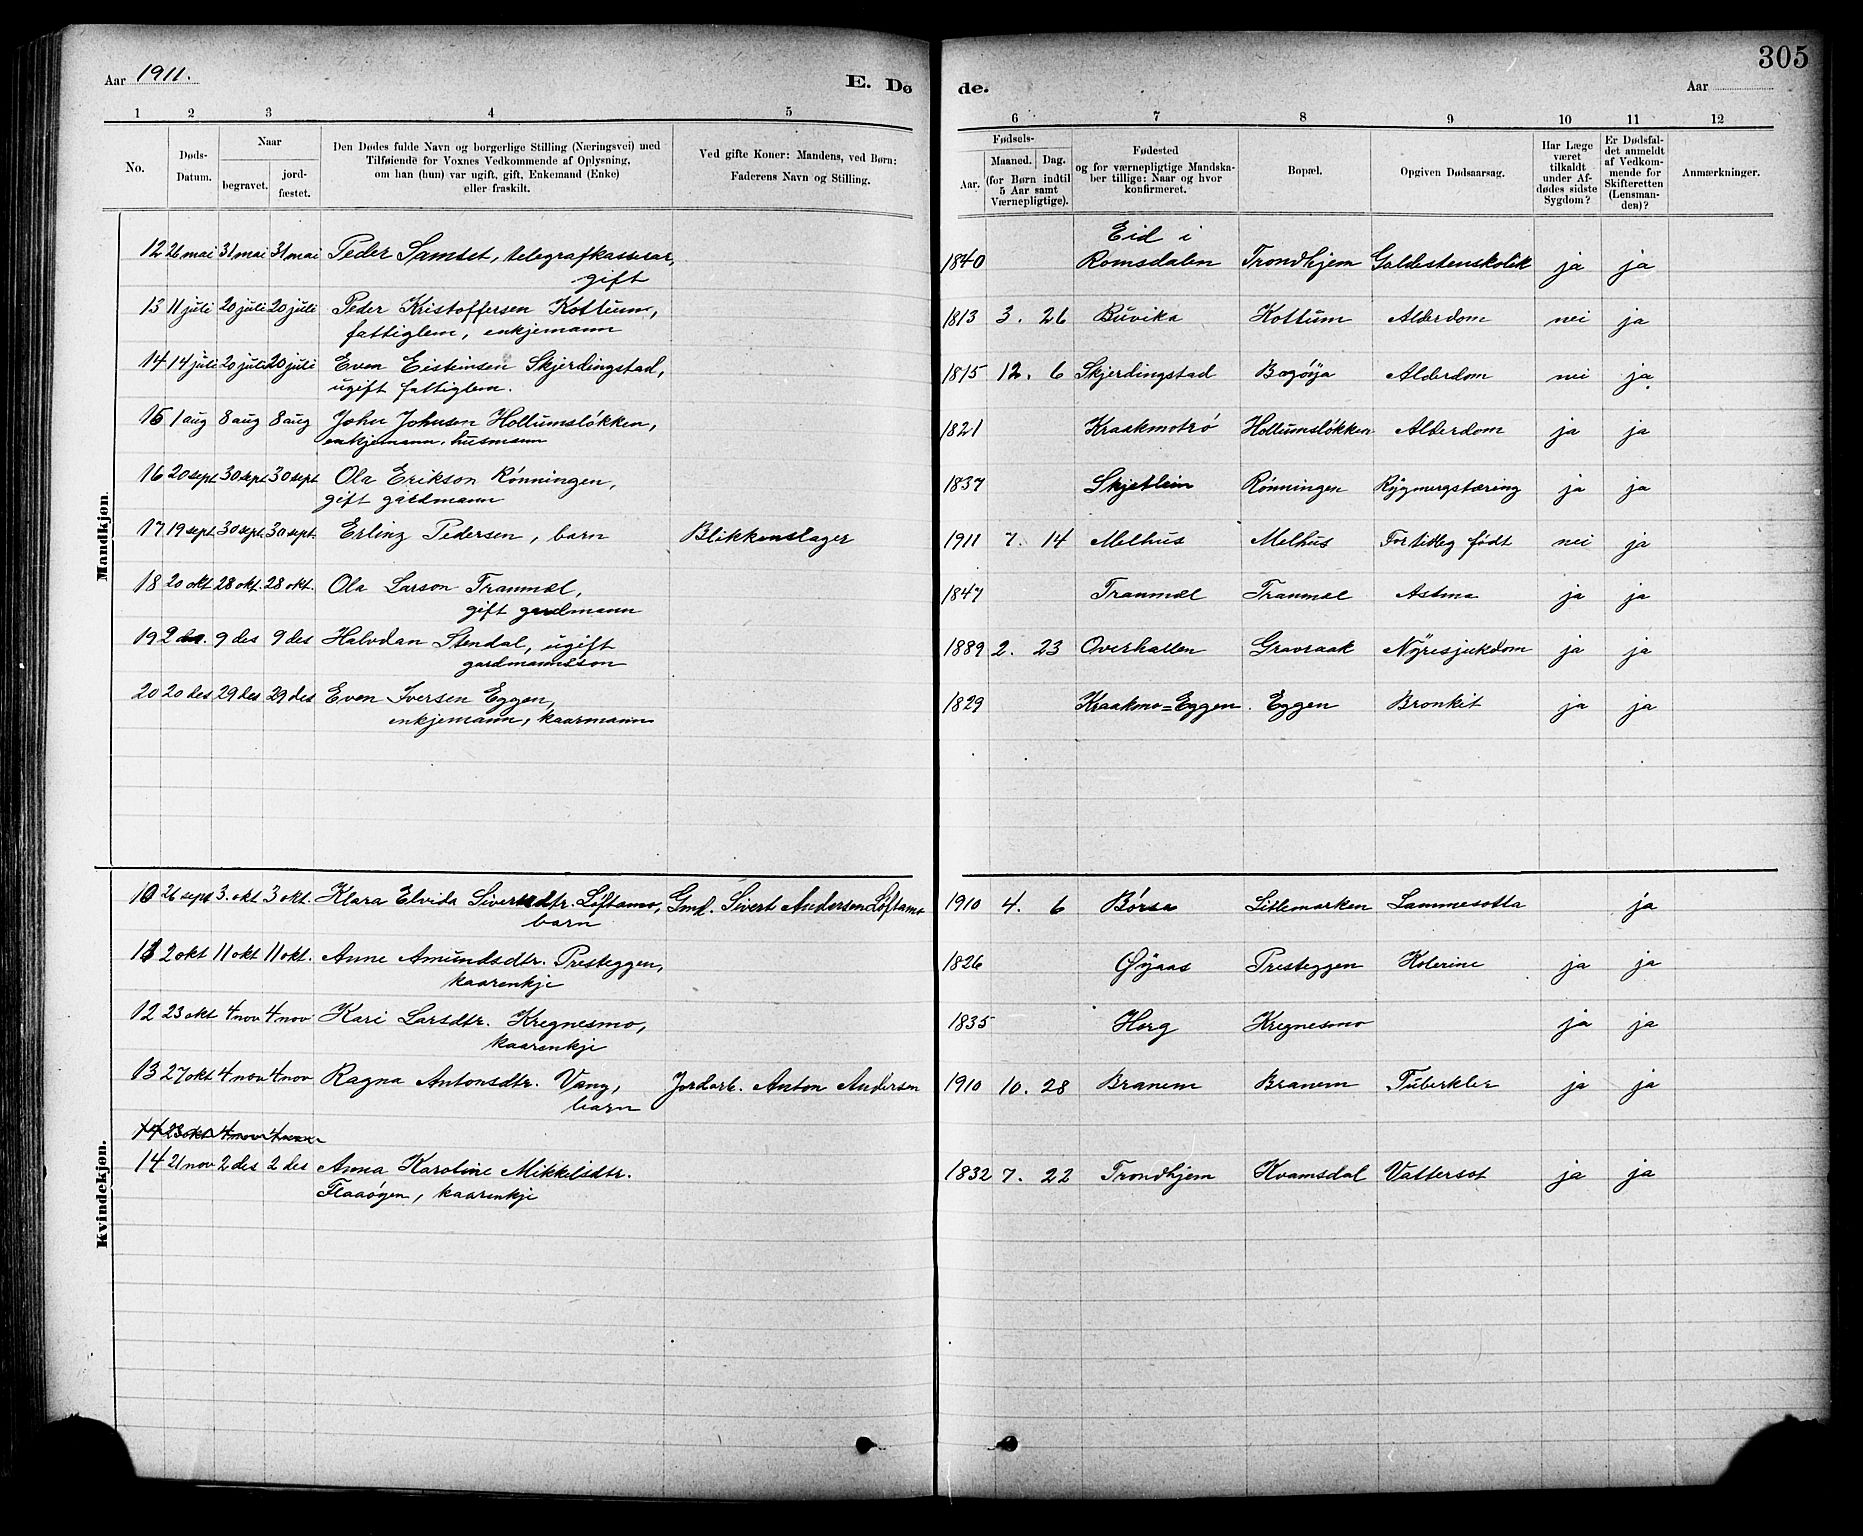 305
Aar 1911.
E. Dø
de.
Aar
1 2 3 4 5
6 7 8 9 10 11 12
No.
Døds-
Datum.
Naar
begravet.
jord-
fæstet.
Den Dødes fulde Navn og borgerlige Stilling (Næringsvei) med
Tilføiende for Voxnes Vedkommende af Oplysning,
om han (hun) var ugift, gift, Enkemand (Enke)
eller fraskilt.
Ved gifte Koner: Mandens, ved Børn:
Faderens Navn og Stilling.
Fødsels-
Aar.
Maaned. Dag.
(for Børn indtil
5 Aar samt
Værnepligtige).
Fødested
og for værnepligtige Mandska-
ber tillige: Naar og hvor
konfirmeret.
Bopæl.
Opgiven Dødsaarsag.
Har Læge
været
tilkaldt
under Af-
dødes sidste
Sygdom?
Er Dødsfal-
det anmeldt
af Vedkom-
mende for
Skifteretten
(Lensman-
den)?
Anmærkninger.
Mandkjøn.
Eid i
12 26 mai 31 mai 31 mai Peder Samset, telegrafkasserar, 1840 Romsdalen Trondhjem Galdestenskolik ja ja
gift
13 11 juli 20 juli 20 juli Peder Kristoffersen Kottum, 1813 3. 26 Buvika Kottum Alderdom nei ja
fattiglem, enkjemann
14 14 juli 20 juli 20 juli Even Eisteinsen Skjerdingstad, 1815 12. 6 Skjerdingstad Bagøya Alderdom nei ja
ugift fattiglem.
15 1 aug 8 aug 8 aug John Johnsen Hollumsløkken, 1821 Kraakmotrø Hollumsløkken Alderdom ja ja
enkjemann, husmann
16 20 sept 30 sept 30 sept Ola Erikson Rønningen, 1837 Skjetlein Rønningen Rygmergstæring ja ja
gift gardmann
17 19 sept 30 sept. 30 sept. Erling Pedersen, barn Blikkenslager 1911 7. 14 Melhus Melhus For tidleg født nei ja
18 20 okt 28 okt. 28 okt. Ola Larson Tranmæl, 1847 Tranmæl Tranmæl Astma ja ja
gift gardmann
19 2 des. 9 des 9 des Halvdan Stendal, ugift 1889 2. 23 Overhallen Gravraak Nyresjukdom ja ja
gardmannsson
20 20 des 29 des 29 des Even Iversen Eggen, 1829 Kraakmo=Eggen. Eggen Bronkit ja ja
enkjemann, kaarmann
Kvindekjøn.
10 26 sept 3. okt 3 okt. Klara Elvida Sivertsdtr. Løftamo, Gmd. Sivert Andersen Løftamo 1910 4. 6 Børsa Litlemarken Lammesotta ja
barn
11 2 okt 11 okt 11 okt. Anne Amundsdtr. Presteggen, 1826 Øyaas Presteggen Kolerine ja ja
kaarenkje
12 23 okt 4 nov 4 nov Kari Larsdtr. Kregnesmo, 1835 Horg Kregnesmo ja ja
kaarenkje
13 27 okt 4 nov 4 nov Ragna Antonsdtr. Vang, Jordarb. Anton Andersen 1910 10. 28 Branem Branem Tuberkler ja ja
barn
14 23 okt 4 nov 4 nov
14 21 nov 2 des 2 des Anna Karoline Mikkelsdtr. 1832 7. 22 Trondhjem Kvamsdal Vattersot ja ja
Flaaøgen, kaarenkje